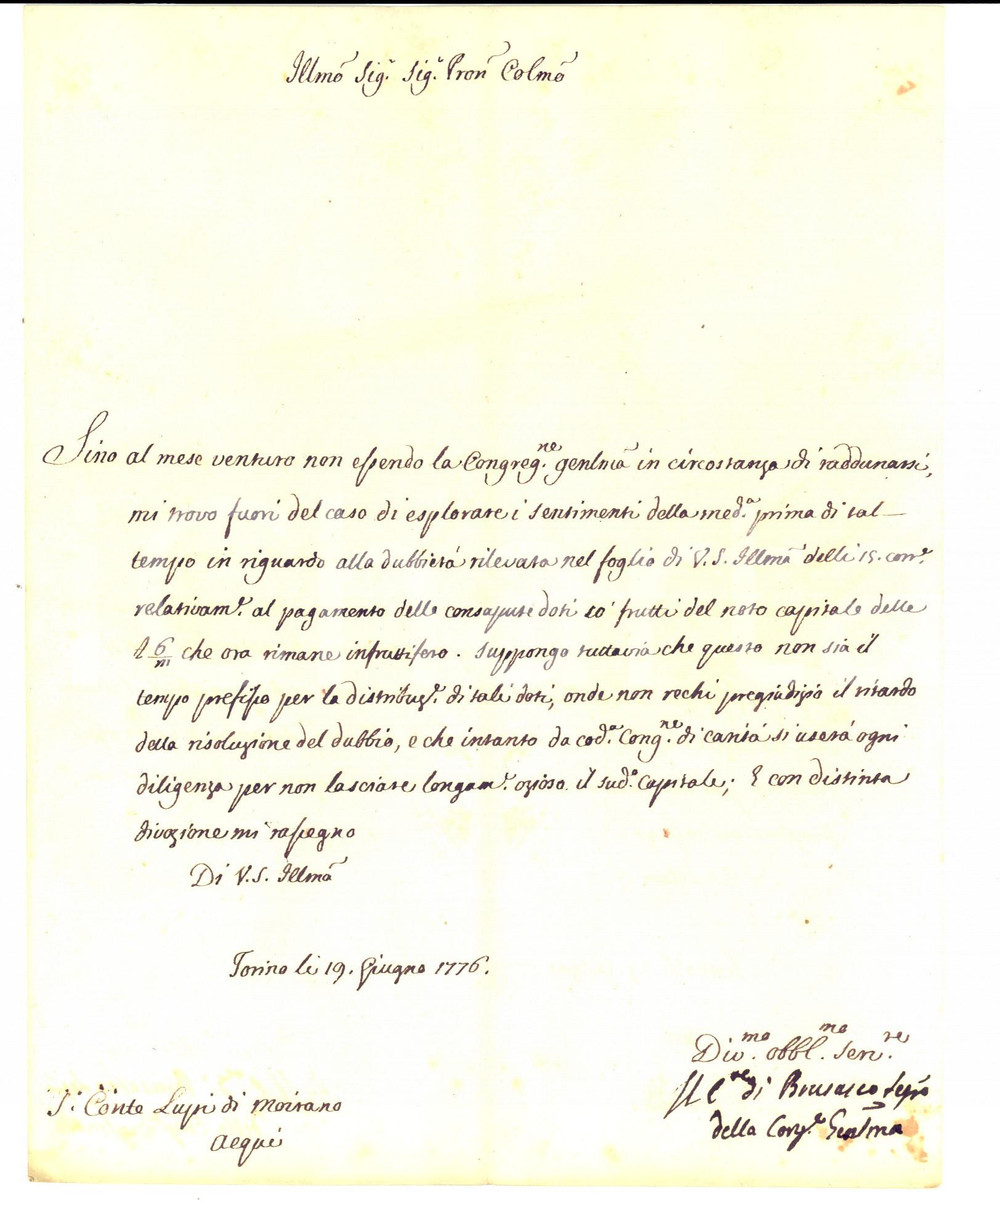 Illmõ Sig.r Sig.r Pron Colmõ
Sino al mese venturo non essendo la Congreg.ne genlmã in circostanza di raddunarsi,
mi trovo fuori del caso di esplorare i sentimenti della med.a prima di tal
tempo in riguardo alla dubbietá rilevata nel foglio di V.S. Illmã delli 15. corr.e
relativam.e al pagamento delle consapute doti co' frutti del noto capitale delle
£ 6/m che ora rimane infruttifero. Suppongo tuttavia che questo non sia il
tempo prefisso per la distribuz.e di tali doti, onde non rechi pregiudizio il ritardo
della risoluzione del dubbio, e che intanto da cod.a Cong.ne di carità si userá ogni
diligenza per non lasciare longam.e ozioso il sud.o capitale; E con distinta
divozione mi rassegno
Di V.S. Illmã
Torino li 19. Giugno 1776.
Div.mo obbl.mo Ser.re
Il C.te di Brusasco Seg.ro
della Cong.e Genlma
S.r Conte Lupi di Moirano
Acqui